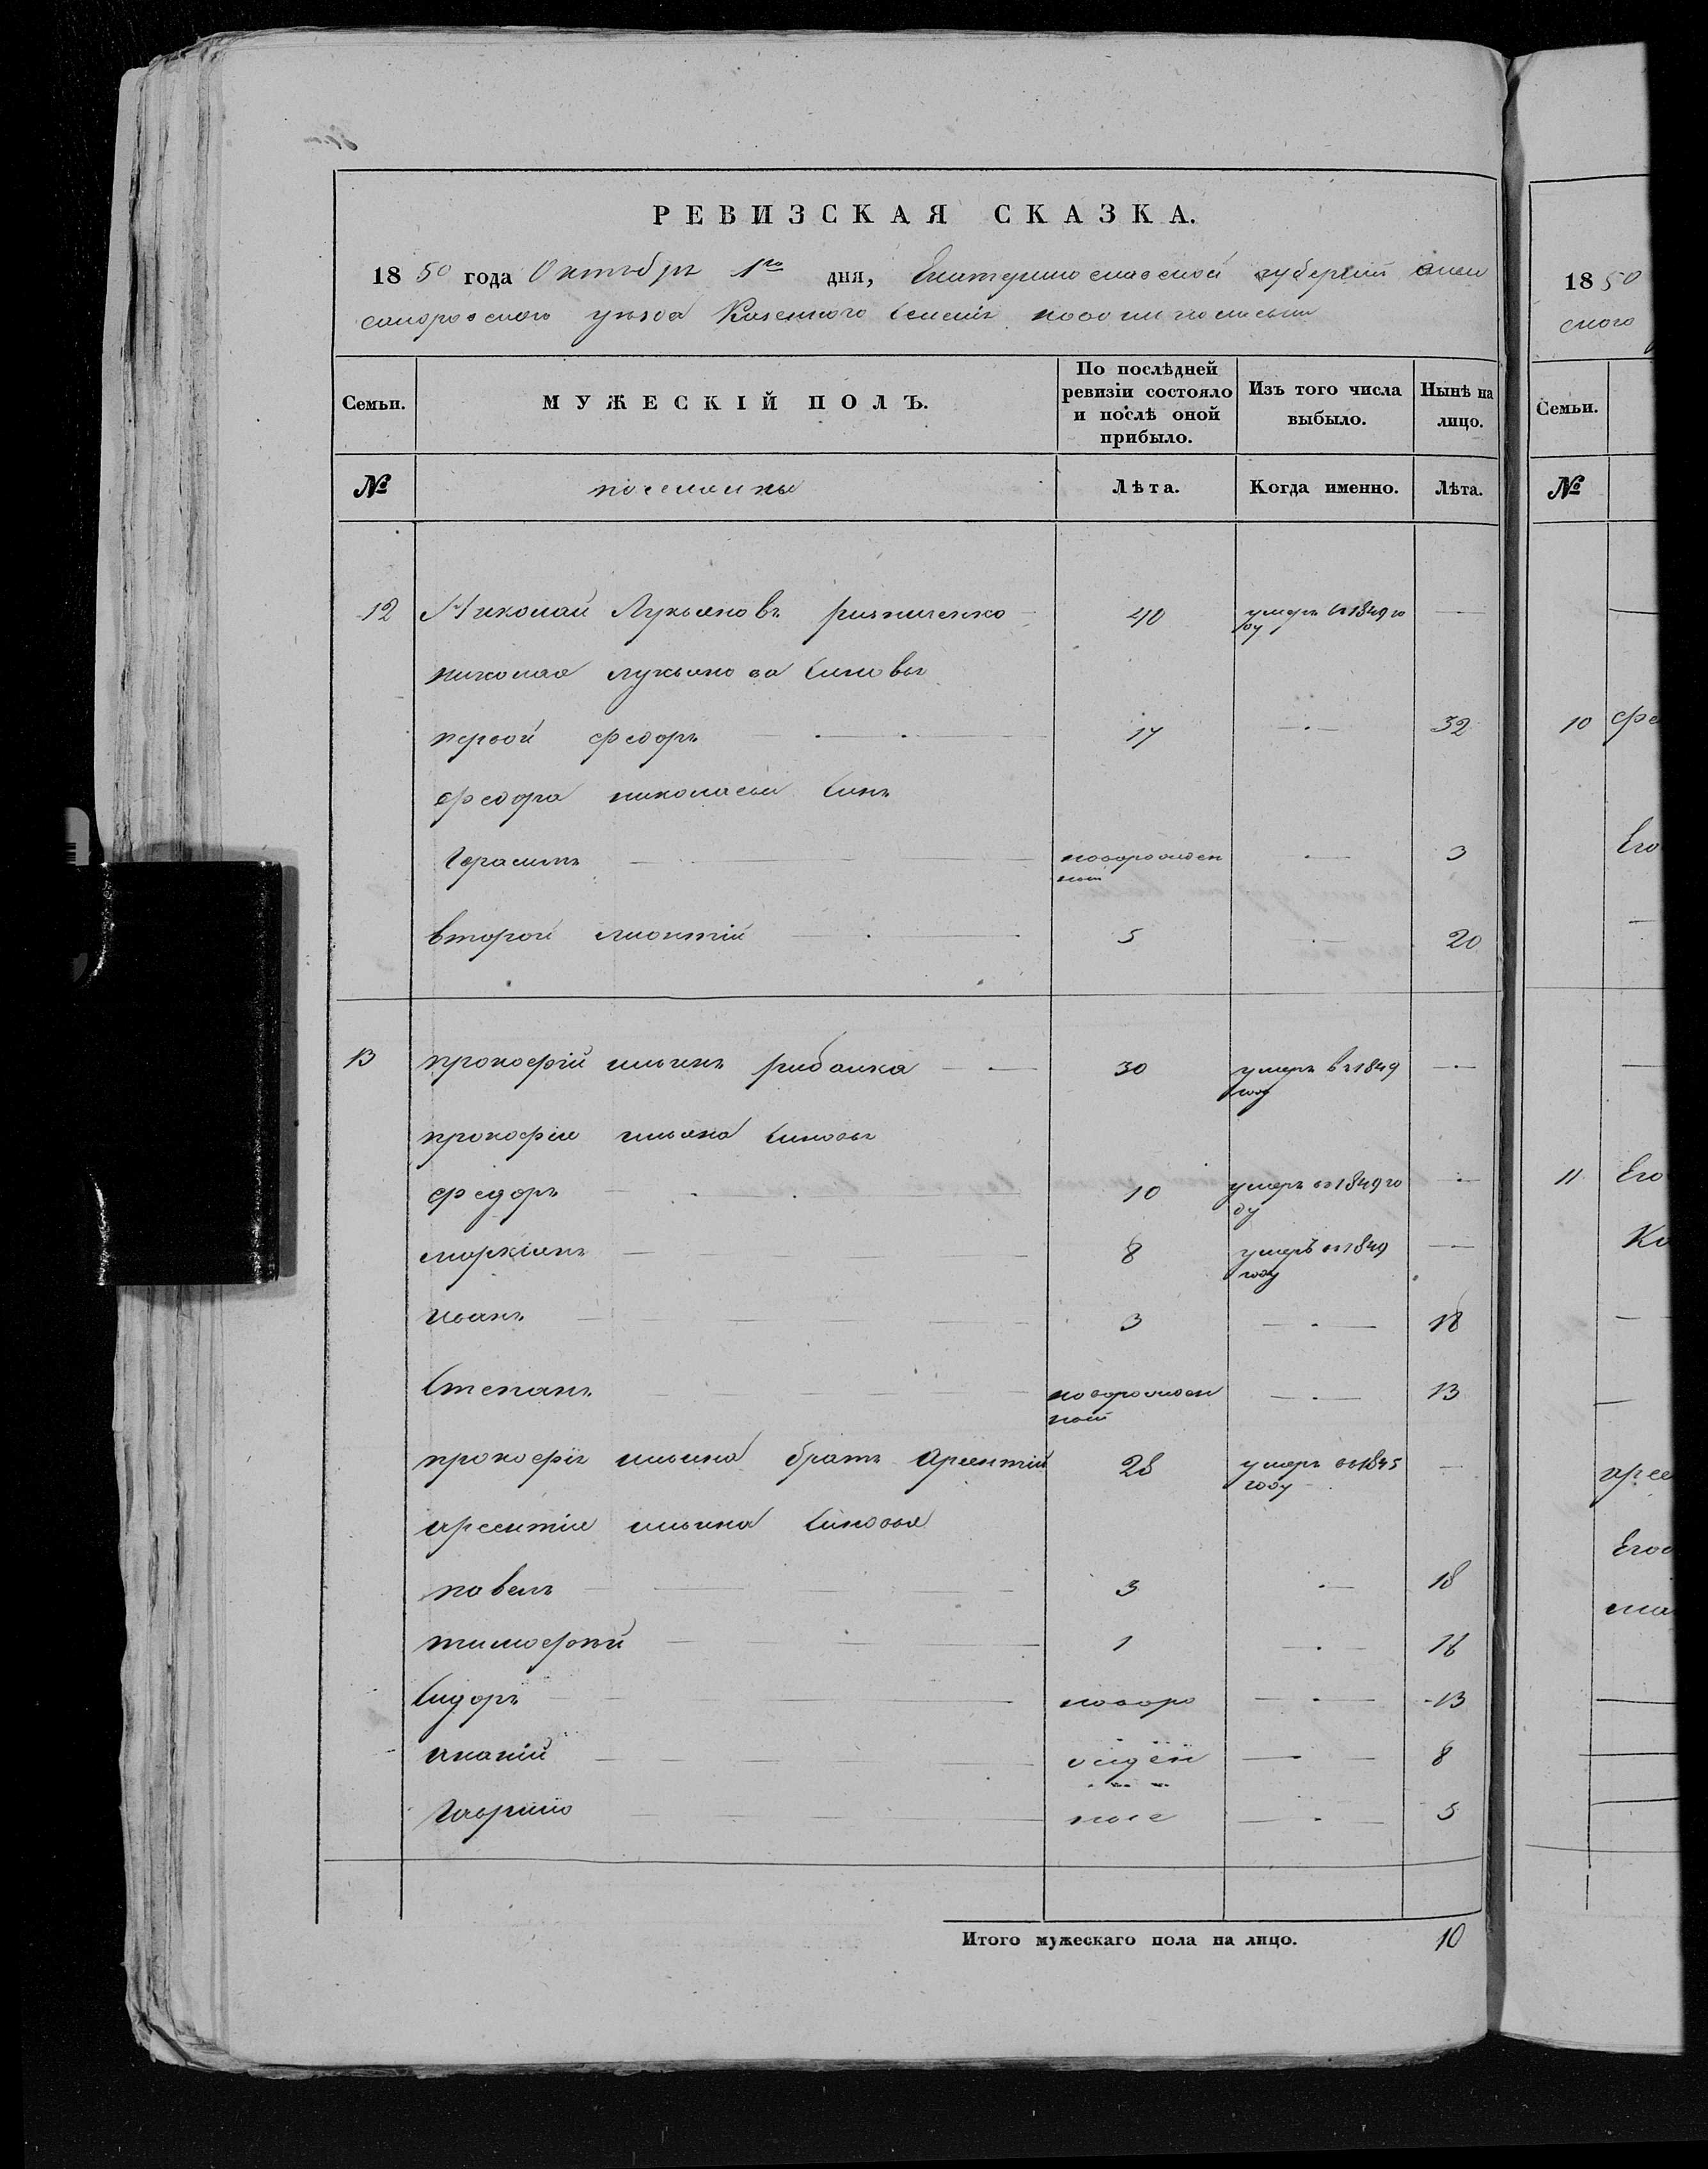 РЕВИЗСКАЯ СКАЗКА.
1850 года Октября 1го дня, Екатеринославской губерний алек
сандровского уезда Казенного Селения
Семьи. МУЖЕСКІЙ ПОЛЪ. По послѣдней ревизіи состояло и послѣ оной прибыло. Изъ того числа выбыло. Нынѣ на лицо.
№ поселяны Лѣта. Когда именно. Лѣта.
12 Николай Лукьяновъ ризниченко 40 умеръ въ 1849 го
ду
николая лукьянова Сыновья
первой федоръ 17 32
федора николаева Синъ
Герасимъ новорожден 3
ной
второй лионтій 5 20
13 прокофій ильинъ рибалка 30 умеръ въ 1849
году
прокофія ильина Синовья
федоръ 10 умеръ въ 1849 го
ду
маркіянъ 8 умеръ въ 1849
году
иванъ 3 18
Степанъ новорожден 13
ной
прокофія ильина братъ Арсентій 28 умеръ въ 1845
году
арсентія ильина Синовья
павелъ 3 18
тимофей 1 16
Сидоръ новоро 13
ананій жден 8
Гаврило ные 5
Итого мужескаго пола на лицо. 10
1850
ского
Семьи.
№
10 фе
Его
11 Его
Ко
арсе
Его